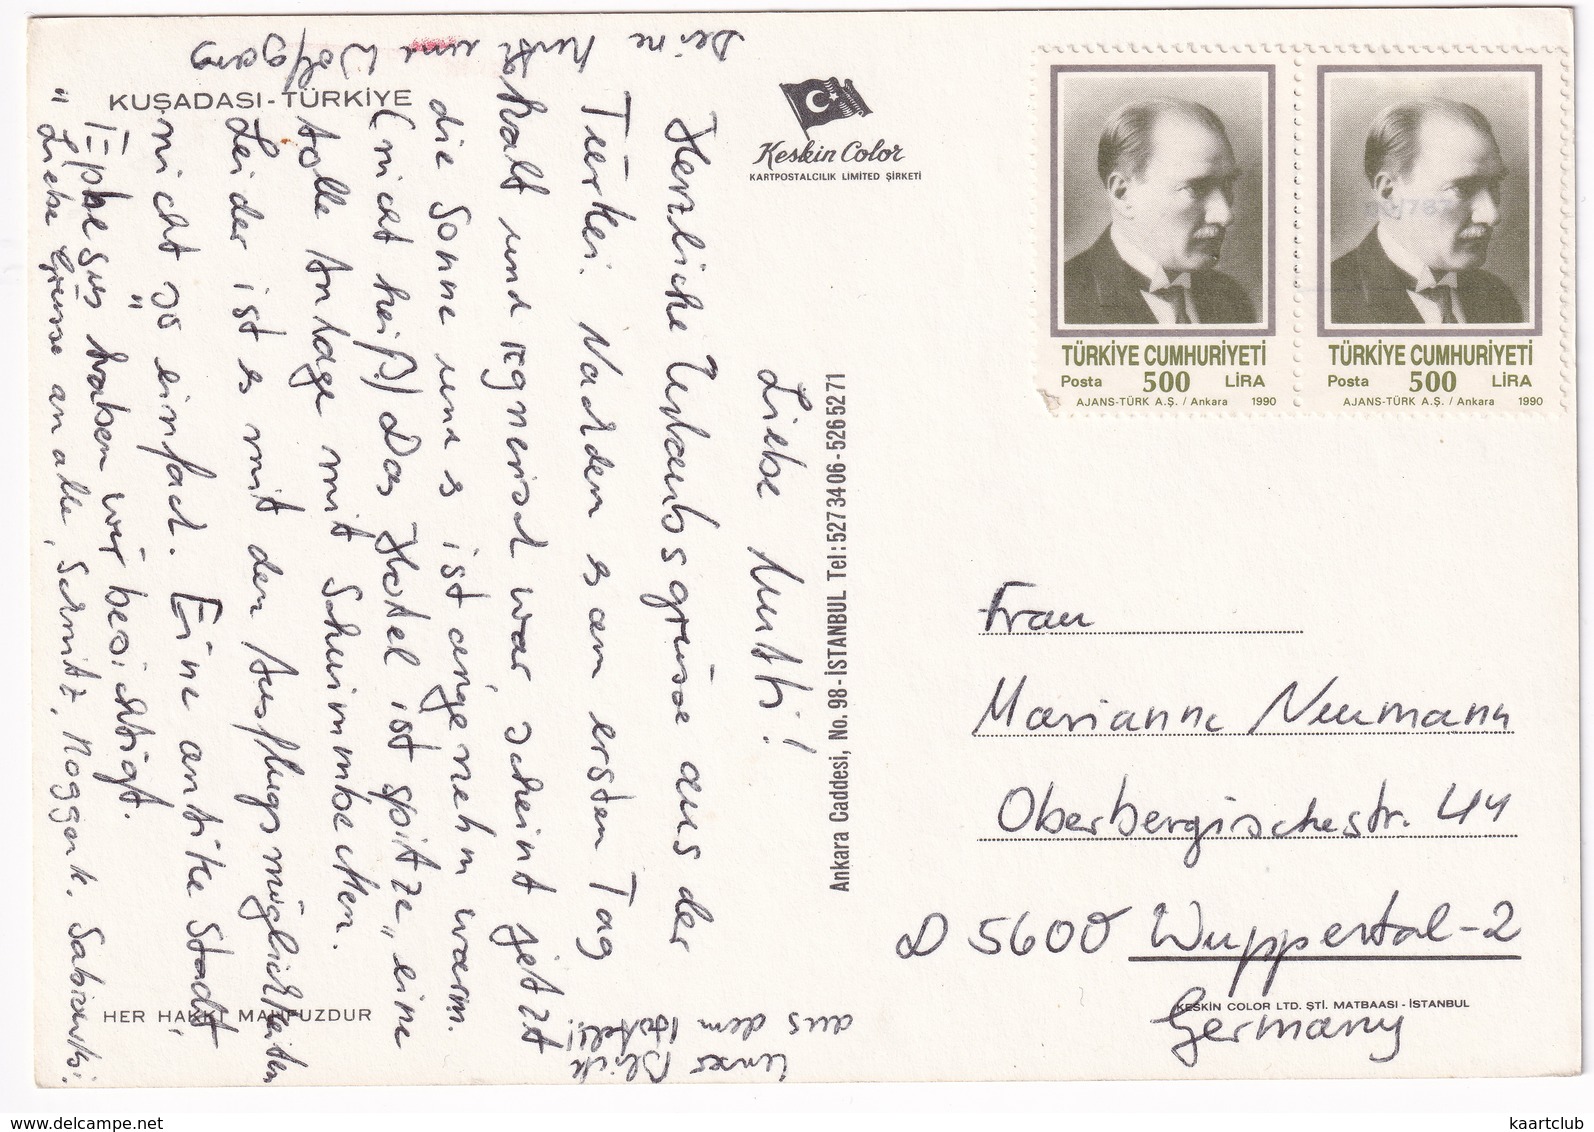 KUŞADASI - TÜRKİYE
Keskin Color
KARTPOSTALCILIK LIMITED ŞİRKETİ
Liebe Mutti!
Herzliche Urlaubsgrüsse aus der
Türkei. Nachdem es am ersten Tag
kalt und regnerisch war, scheint jetzt
die Sonne und es ist angenehm warm.
(nicht heiß) Das Hotel ist spitze, eine
tolle Anlage mit Schwimmbecken.
Leider ist es mit den Ausflugsmöglichkeiten
nicht so einfach. Eine antike Stadt
"Ephesus" haben wir besichtigt.
Liebe Grüsse an alle, Schmitz, Noggen k.
Deine und Wolfgang
Unser Blick
aus dem Hotel!!
HER HAKKI MAHFUZDUR
Ankara Caddesi, No. 98 - İSTANBUL Tel: 527 34 06 - 526 52 71
TÜRKİYE CUMHURİYETİ
Posta 500 LİRA
AJANS-TÜRK A.Ş. / Ankara 1990
TÜRKİYE CUMHURİYETİ
Posta 500 LİRA
AJANS-TÜRK A.Ş. / Ankara 1990
Frau
Marianne Neumann
Oberbergischestr. 44
D 5600 Wuppertal-2
Germany
KESKİN COLOR LTD. ŞTİ. MATBAASI - İSTANBUL
kaartclub